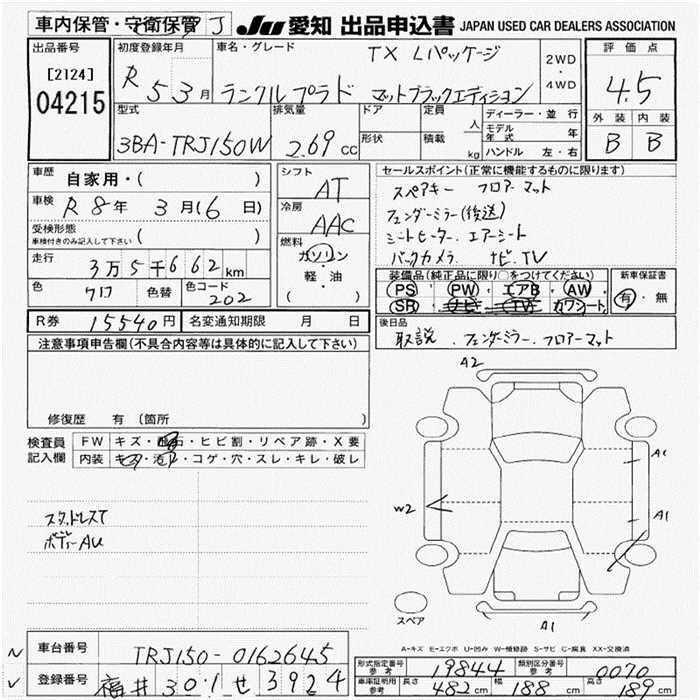 車内保管・守衛保管 J JU 愛知 出品申込書 JAPAN USED CAR DEALERS ASSOCIATION
出品番号 [2124] 04215
初度登録年月 R 5 3月
車名・グレード TX Lパッケージ
ランクルプラド マットブラックエディション
2WD・4WD
評価点 4.5
外装 内装
B B
型式 3BA-TRJ150W
排気量 2.69 cc
ドア 形状
定員 人
積載 kg
ディーラー・並行
モデル年式 年
ハンドル 左・右
車歴 自家用・( )
車検 R 8年 3月(6日)
受検形態 車検付きのみ記入して下さい ( )
走行 3万5千662km
色 クロ 色替 色コード 202
シフト AT
冷房 AAC
燃料 ガソリン・軽・油 ( )
セールスポイント(正常に機能するものに限ります)
スペアキー フロアーマット
フェンダーミラー(後送)
シートヒーター、エアーシート
バックカメラ ナビ、TV
装備品(純正品に限り〇をつけてください)
PS PW エアB AW
SR ナビ TV カワシート
新車保証書
有・無
R券 15540円 名変通知期限 月 日
後日品 取説、フェンダーミラー、フロアーマット
注意事項申告欄(不具合内容等は具体的に記入して下さい)
修復歴 有 (箇所 )
検査員記入欄
FW キズ・飛石・ヒビ割・リペア跡・X要
内装 キズ・汚れ・コゲ・穴・スレ・キレ・破レ
スタッドレスT
ボディーAU
A2
A1
W2
A1
スペア
A1
A-キズ E-エクボ U-凹み W-補修跡 S-サビ C-腐食 XX-交換済
車台番号 TRJ150-0162645
登録番号 福井301せ3924
形式指定番号 参考 19844
類別区分番号 参考 0070
車庫証明用 参考 長さ 482cm 幅 188cm 高さ 189cm